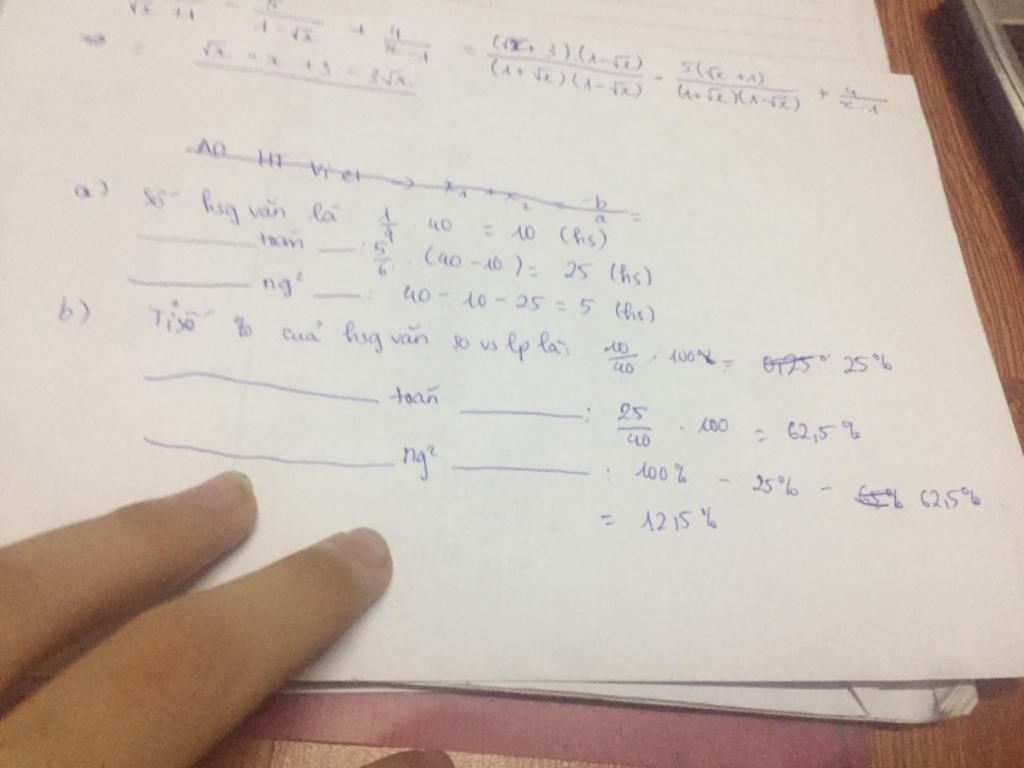 √x + 1 - 5/(1 - √x) + 4/(x - 1) = ((√x + 3)(1 - √x))/((1 + √x)(1 - √x)) - 5(√x + 1)/((1 + √x)(1 - √x)) + 4/(x - 1)
√x - x + 3 - 3√x
AD HT Vi et → x₁ + x₂ = -b/a =
a) Số hsg văn là 1/4 . 40 = 10 (hs)
toán : 5/6 . (40 - 10) = 25 (hs)
ng² : 40 - 10 - 25 = 5 (hs)
b) Tỉ số % của hsg văn so vs lp là: 10/40 . 100% = 0,25 25%
toán : 25/40 . 100 = 62,5%
ng² : 100% - 25% - 65% 62,5%
= 12,5%